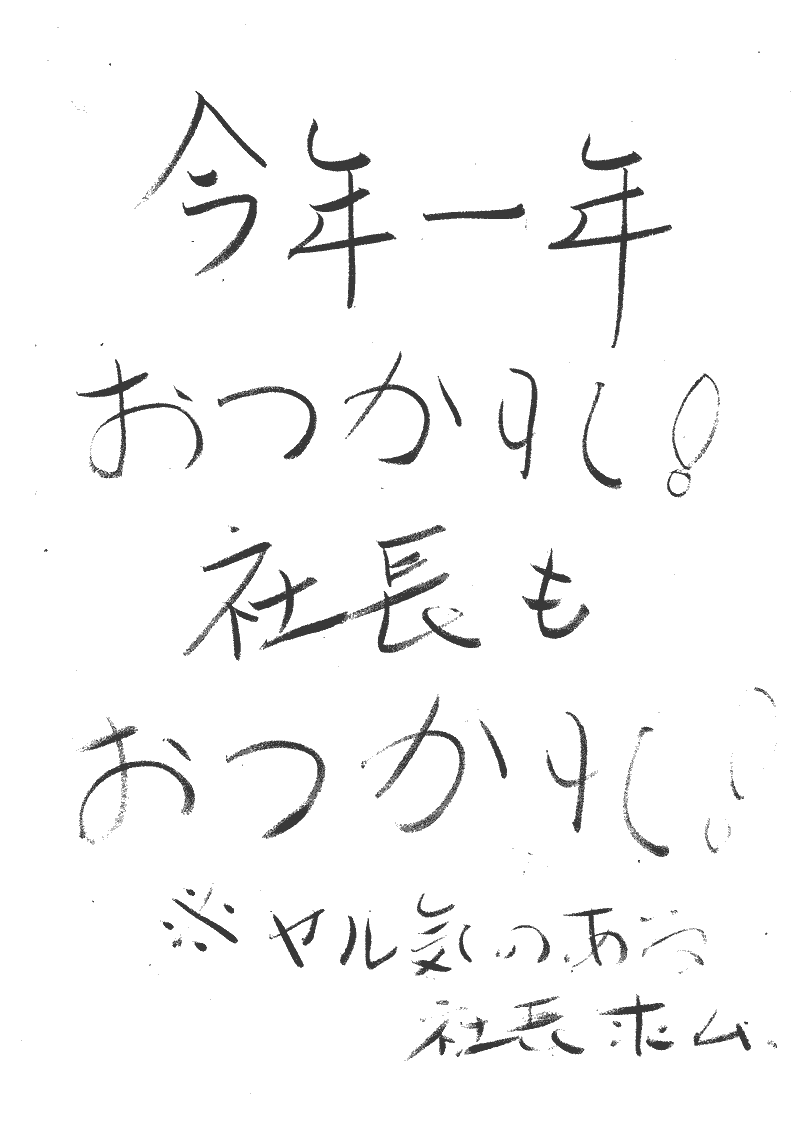 今年一年
おつかれ!
社長も
おつかれ!
※ヤル気のある
社長求ム、